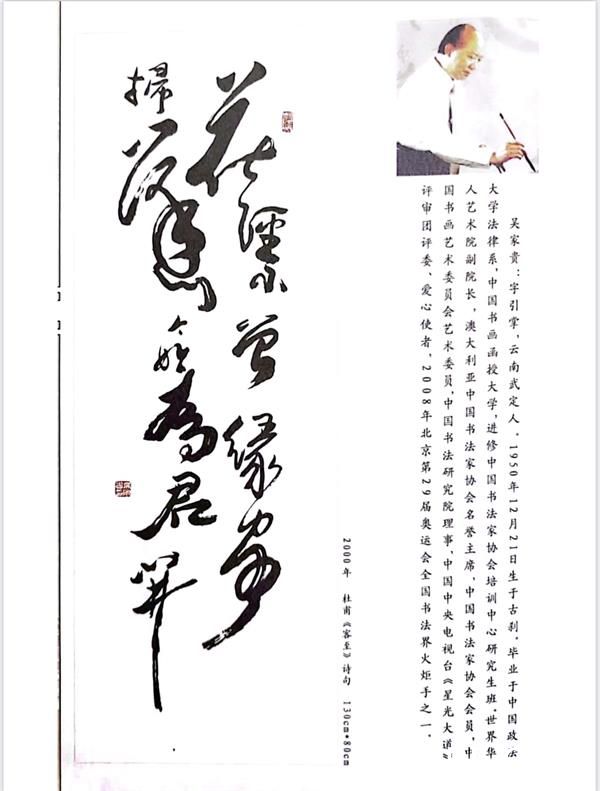 吴家贵:字引掌,云南武定人。1950年12月21日生于古刹。毕业于中国政法
大学法律系,中国书画函授大学,进修中国书法家协会培训中心研究生班。世界华
人艺术院副院长,澳大利亚中国书法家协会名誉主席,中国书法家协会会员,中
国书画艺术委员会艺术委员,中国书法研究院理事,中国中央电视台《星光大道》
评审团评委、爱心使者,2008年北京第29届奥运会全国书法界火炬手之一。
2000年 杜甫《客至》诗句 130cm*80cm
花徑不曾緣客
掃蓬門今始為君開